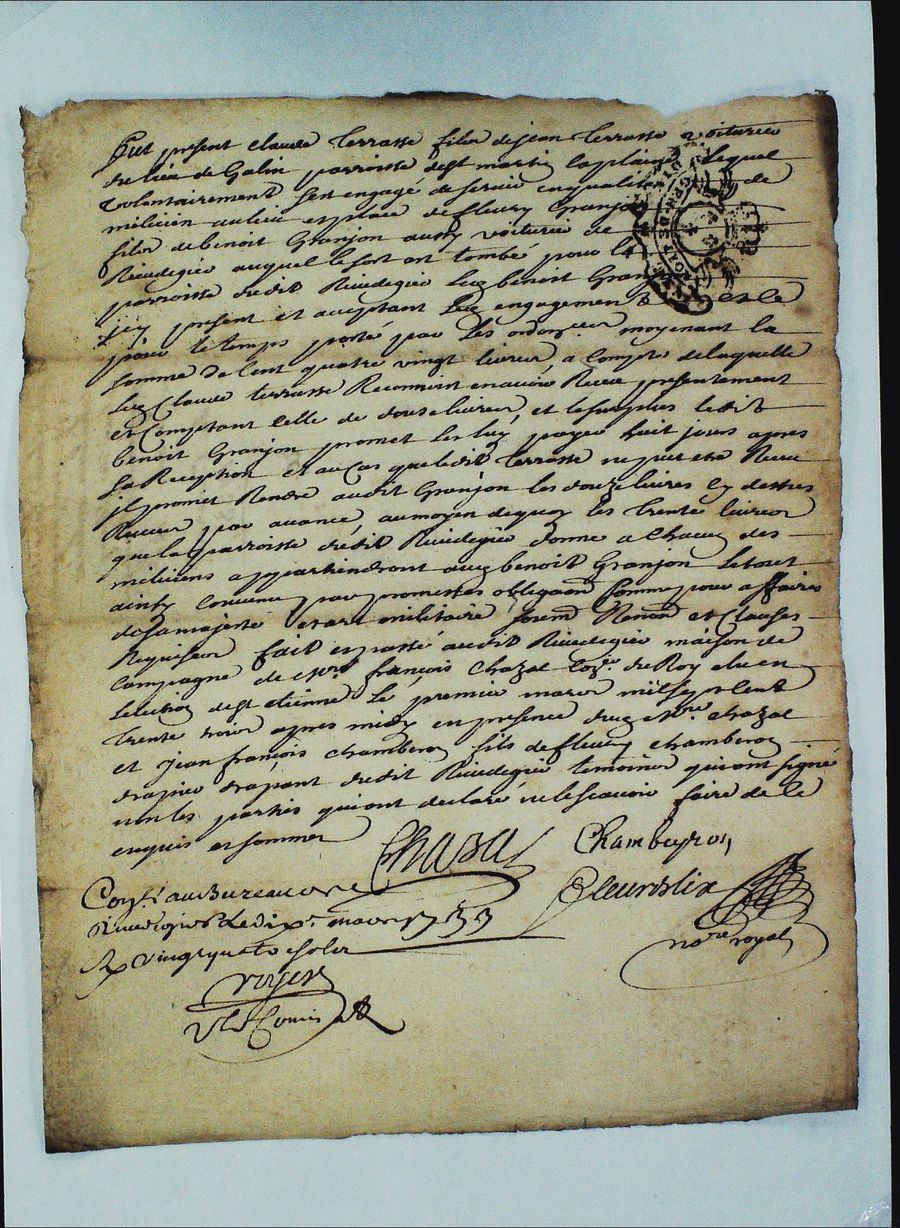 fut present claude terrasse filz de jean terrasse voiturier
du lieu de Galin parroisse de st martin laplaine lequel
volontairement s'en engagé de servir en qualité de
milicien au lieu et place de fleury Granjon
filz de benoit Granjon aussy voiturier de
Rivedegier auquel le sort est tombé pour la
parroisse dudit Rivedegier led benoit Granjon
icy present et acceptant led engagement et ce
pour le temps porté par les ordonnces moyenant la
somme de cent quatre vingt livres, a compte de laquelle
led Claude terrasse Reconnoit en avoir Receu presentement
et Comptant celle de douze livres, et le surplus ledit
benoit Granjon promet de luy payer huit jours apres
sa Reception et au cas que ledit terrasse ne put etre Receu
il promet Rendre audit Granjon les douze livres cy dessus
Receues par avance, au moyen de quoy les trente livres
que la parroisse dudit Rivedegier donne a chacun des
miliciens appartiendront aud benoit Granjon le tout
ainsy convenu par promesses obligaon comme pour affaires
de sa majesté et art militaire soumd Renond et Clauses
Requises fait et passé audit Rivedegier maison de
Campagne de Mre françois Chazal du Roy elu en
l'election de st etienne le premier mars mil sept cent
trente trois apres midy en presence dud Mre chazal
et jean françois chamberon fils de fleury chamberon
drapier drapant dudit Rivedegier temoins qui ont signé
non les parties qui ont declaré ne le scavoir faire de ce
enquis et sommes
Chazal Chambeyron
Conllé au Bureau de
Rivedegier le dixe mars 1733
Rx vingt quatre solz
fleurdelix
nore royal
royer
Comis